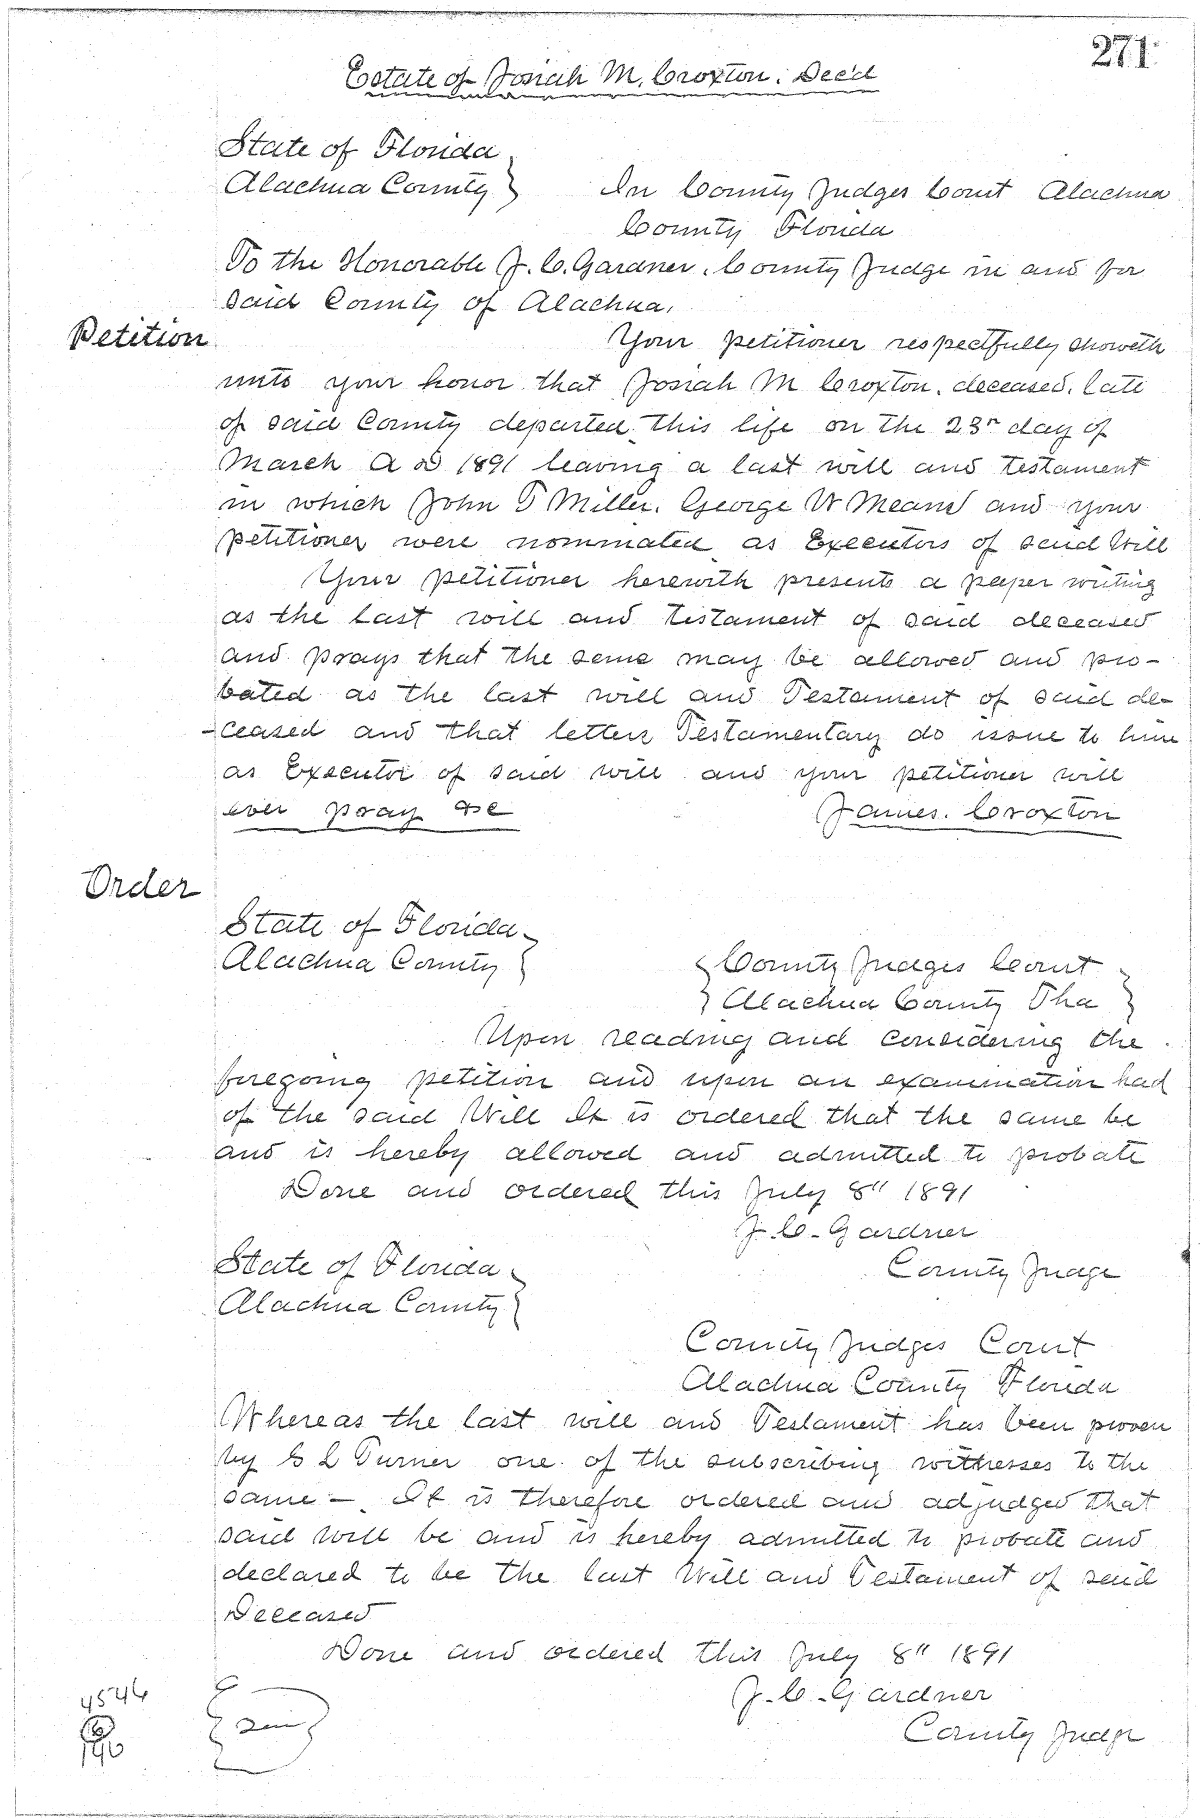 271
Estate of Josiah M. Croxton. Dec'd
State of Florida
Alachua County } In County Judges Court Alachua
County Florida
To the Honorable J. C. Gardner. County Judge in and for
said County of Alachua.
Petition
Your petitioner respectfully showeth
unto your honor that Josiah M Croxton. deceased. late
of said County departed this life on the 23r day of
March A D 1891 leaving a last will and testament
in which John T Miller. George W Means and your
petitioner were nominated as Executors of said Will
Your petitioner herewith presents a paper writing
as the last will and testament of said deceased
and prays that the same may be allowed and pro-
bated as the last will and Testament of said de-
-ceased and that letters Testamentary do issue to him
as Executor of said will and your petitioner will
ever pray &c James. Croxton
Order
State of Florida
Alachua County } { County Judges Court
Alachua County Fla }
Upon reading and considering the
foregoing petition and upon an examination had
of the said Will It is ordered that the same be
and is hereby allowed and admitted to probate
Done and ordered this July 8" 1891
J. C. Gardner
County Judge
State of Florida
Alachua County }
County Judges Court
Alachua County Florida
Whereas the last will and Testament has been proven
by G L Turner one of the subscribing witnesses to the
same -. It is therefore ordered and adjudged that
said will be and is hereby admitted to probate and
declared to be the last Will and Testament of said
Deceased
Done and ordered this July 8" 1891
J. C. Gardner
County Judge
4546